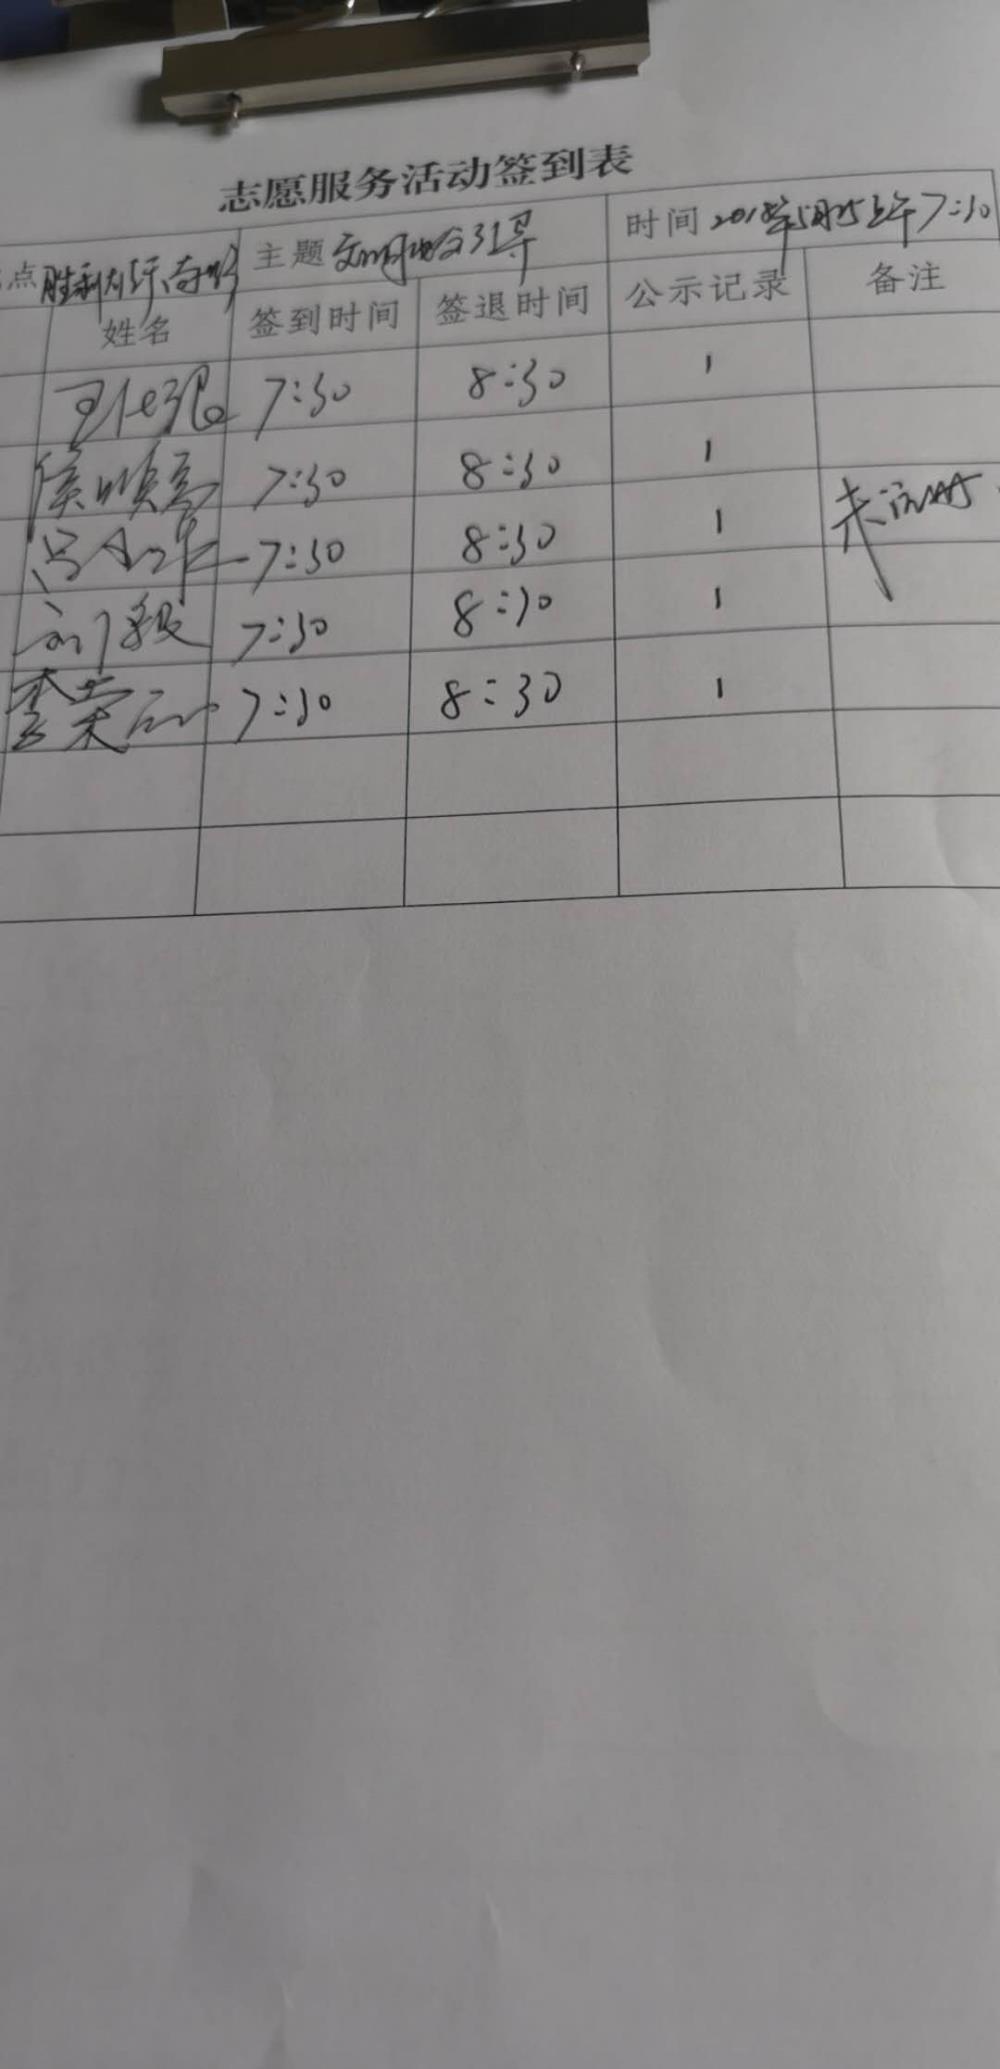 志愿服务活动签到表
点 胜利大街 主题 文明 引导 时间 2018年5月25上午7:30
姓名 签到时间 签退时间 公示记录 备注
7:30 8:30 1
侯顺 7:30 8:30 1
7:30 8:30 1 未注册
刘毅 7:30 8:30 1
李荣 7:30 8:30 1